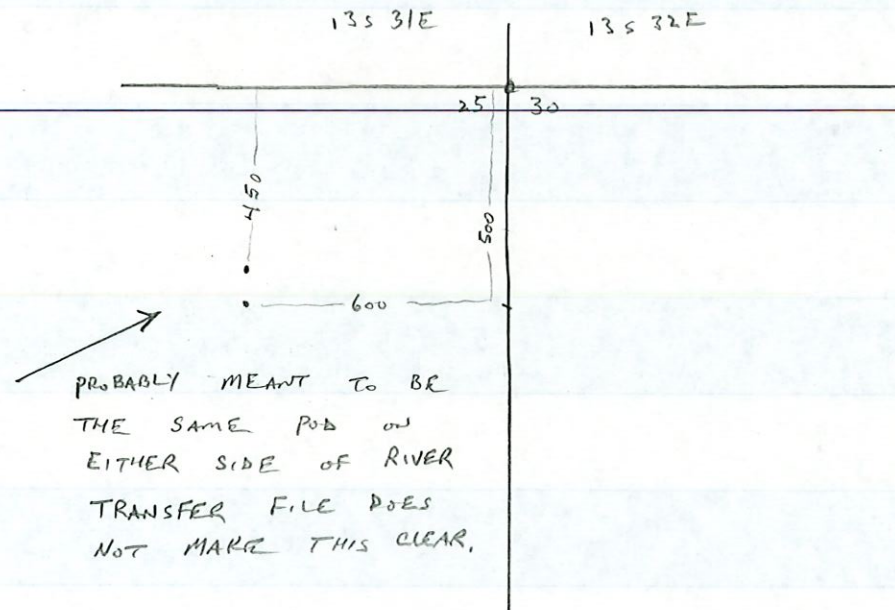 13S 31E 13S 32E
25 30
450
500
600
PROBABLY MEANT TO BE
THE SAME POD ON
EITHER SIDE OF RIVER
TRANSFER FILE DOES
NOT MAKE THIS CLEAR.